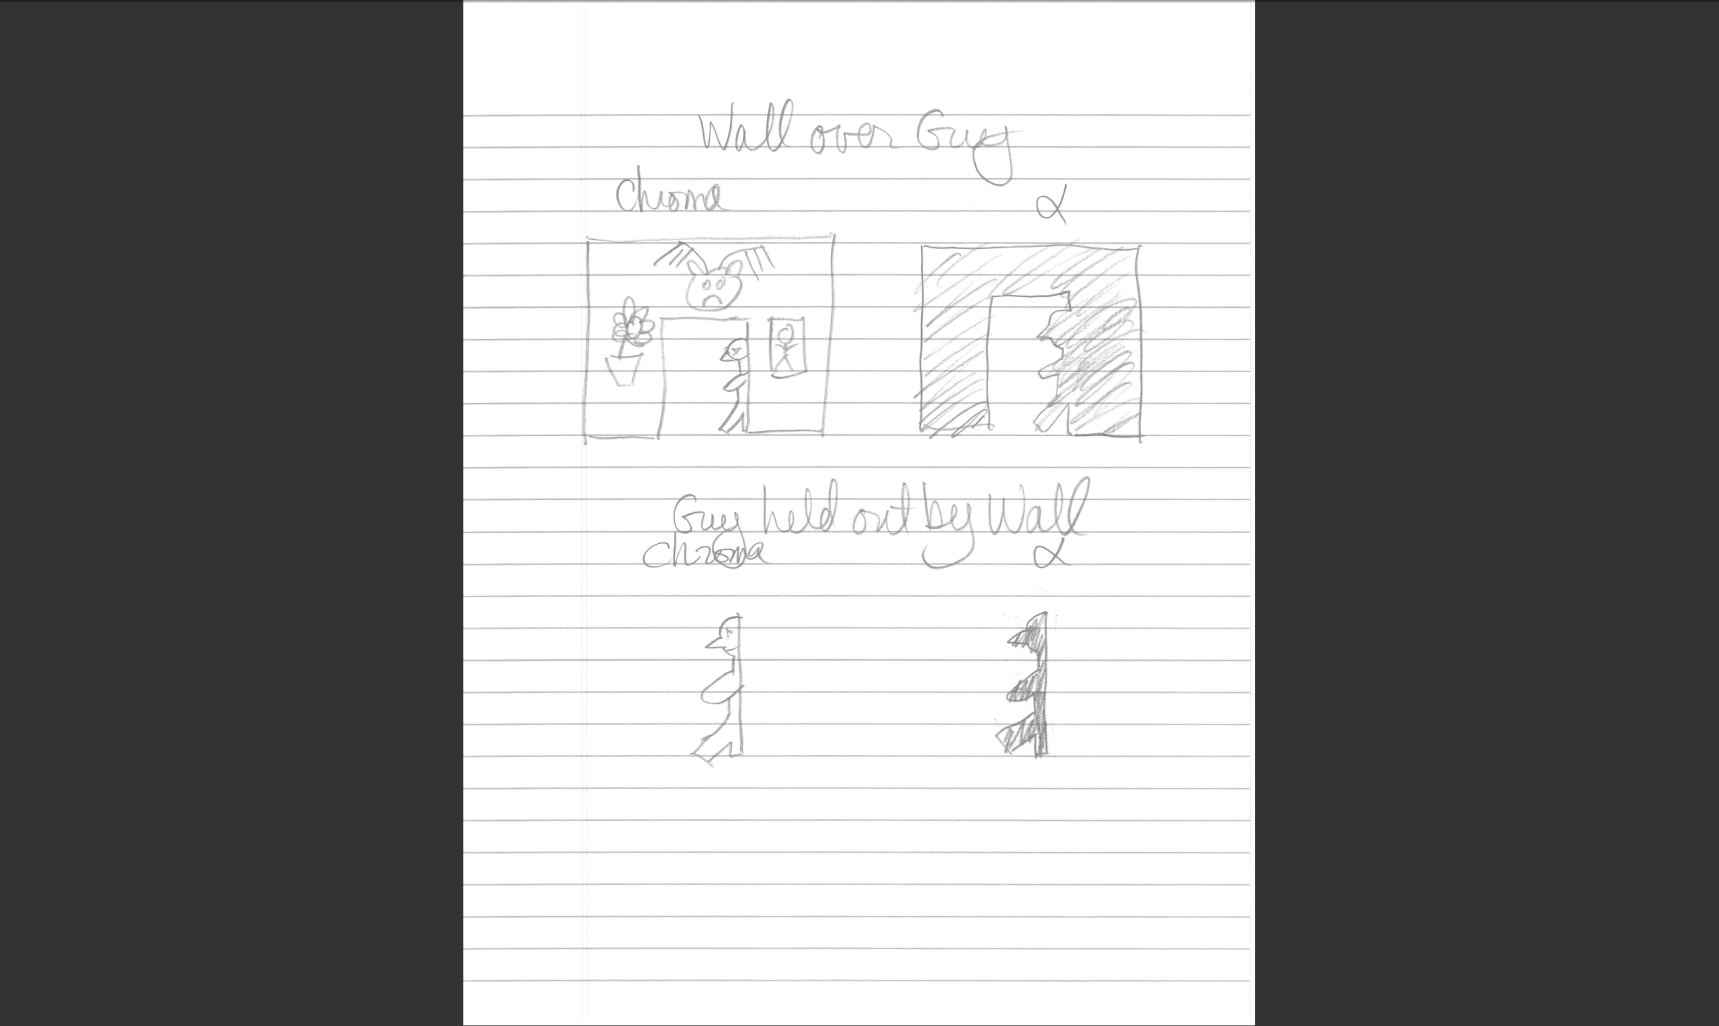 Wall over Guy
Chroma α
Guy held out by Wall
Chroma α